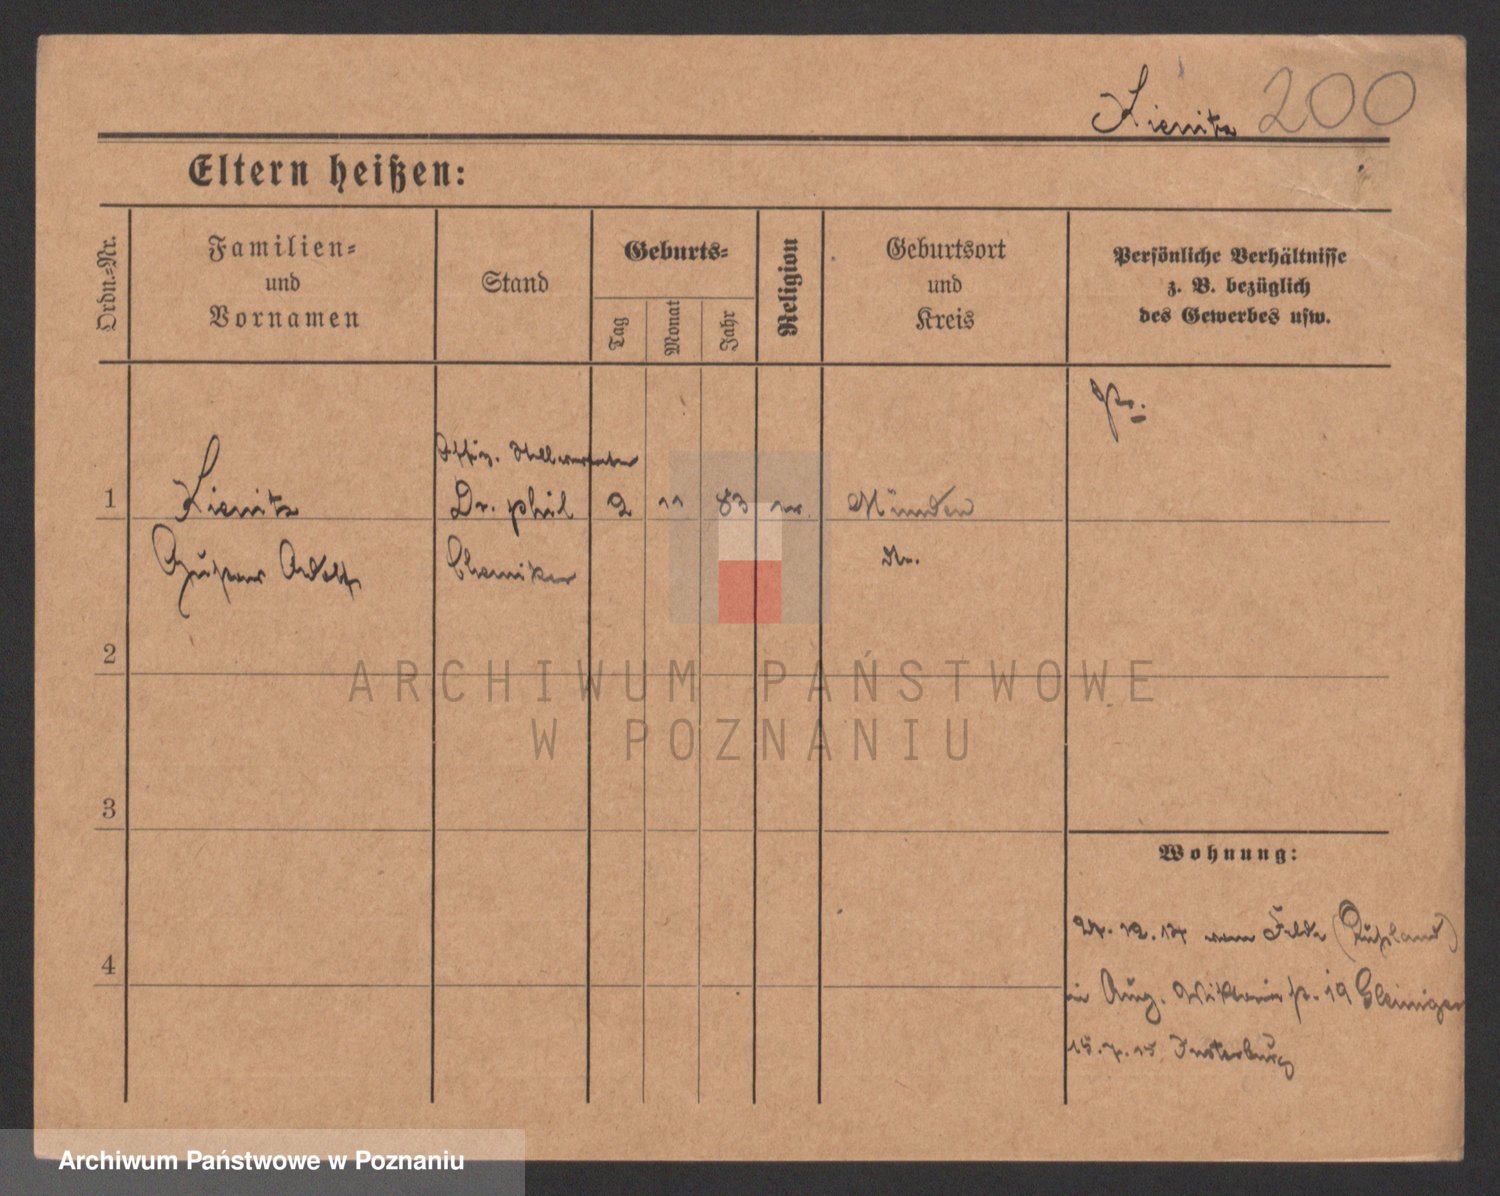 Kienitz 200
Eltern heißen:
Ordn.-Nr.
Familien-
und
Vornamen
Stand
Geburts-
Tag
Monat
Jahr
Religion
Geburtsort
und
Kreis
Persönliche Verhältnisse
z. B. bezüglich
des Gewerbes usw.
Pr.
Offiz. Stellvertreter
1 Kienitz Dr. phil 2 11 83 Münden
Gustav Adolf Chemiker
2
3
4
Wohnung:
12.14 vom Felde (Rußland)
Aug. Viktoria 19 Gleiniger
15.7.15 Insterburg
ARCHIWUM PAŃSTWOWE
W POZNANIU
Archiwum Państwowe w Poznaniu